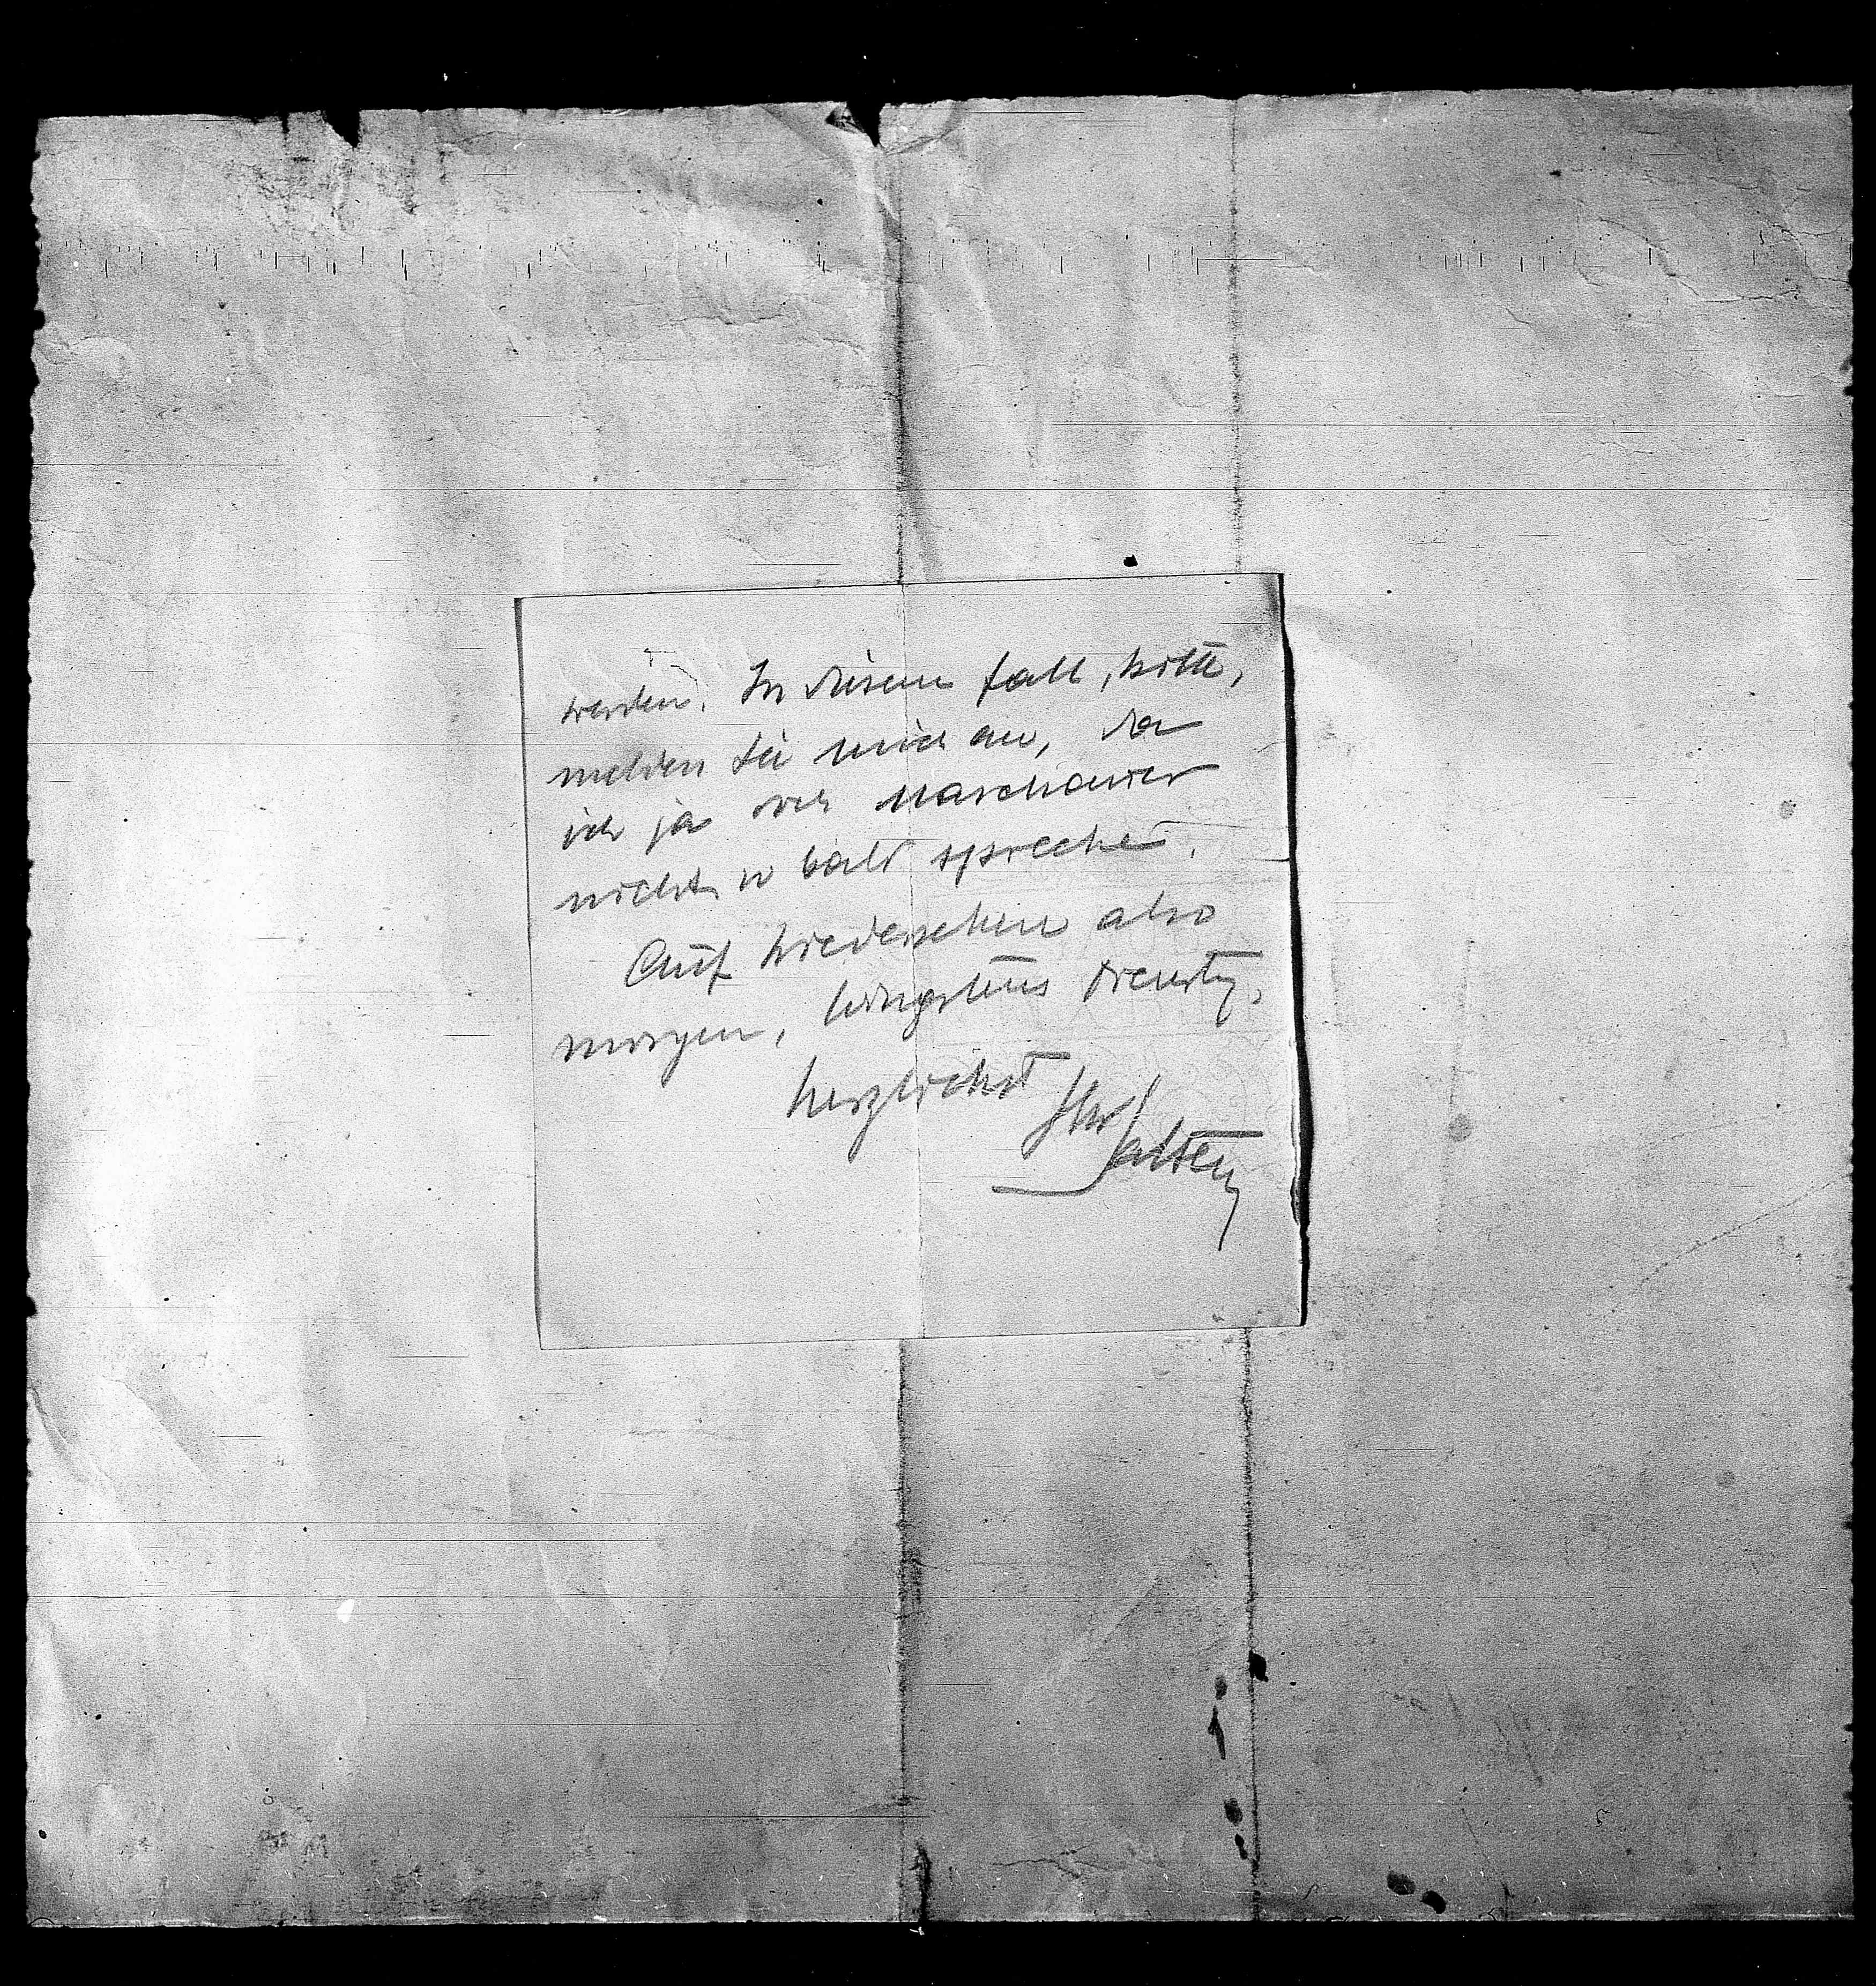 werden. In diesem Fall, bitte,
melden Sie mich an, da
ich ja den Maschauer
nicht so bald spreche.
Auf Wiedersehen also
morgen, längstens Dienstg.
herzlichst Ihr
Salten